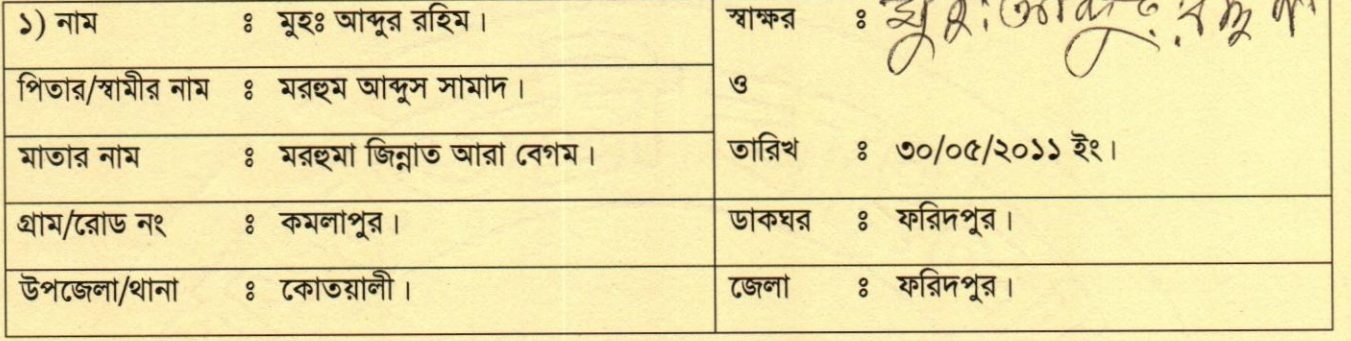 ১) নাম ঃ মুহঃ আব্দুর রহিম। স্বাক্ষর ঃ মুহঃ আব্দুর
পিতার/স্বামীর নাম ঃ মরহুম আব্দুস সামাদ। ও
মাতার নাম ঃ মরহুমা জিন্নাত আরা বেগম। তারিখ ঃ ৩০/০৫/২০১১ ইং।
গ্রাম/রোড নং ঃ কমলাপুর। ডাকঘর ঃ ফরিদপুর।
উপজেলা/থানা ঃ কোতয়ালী। জেলা ঃ ফরিদপুর।